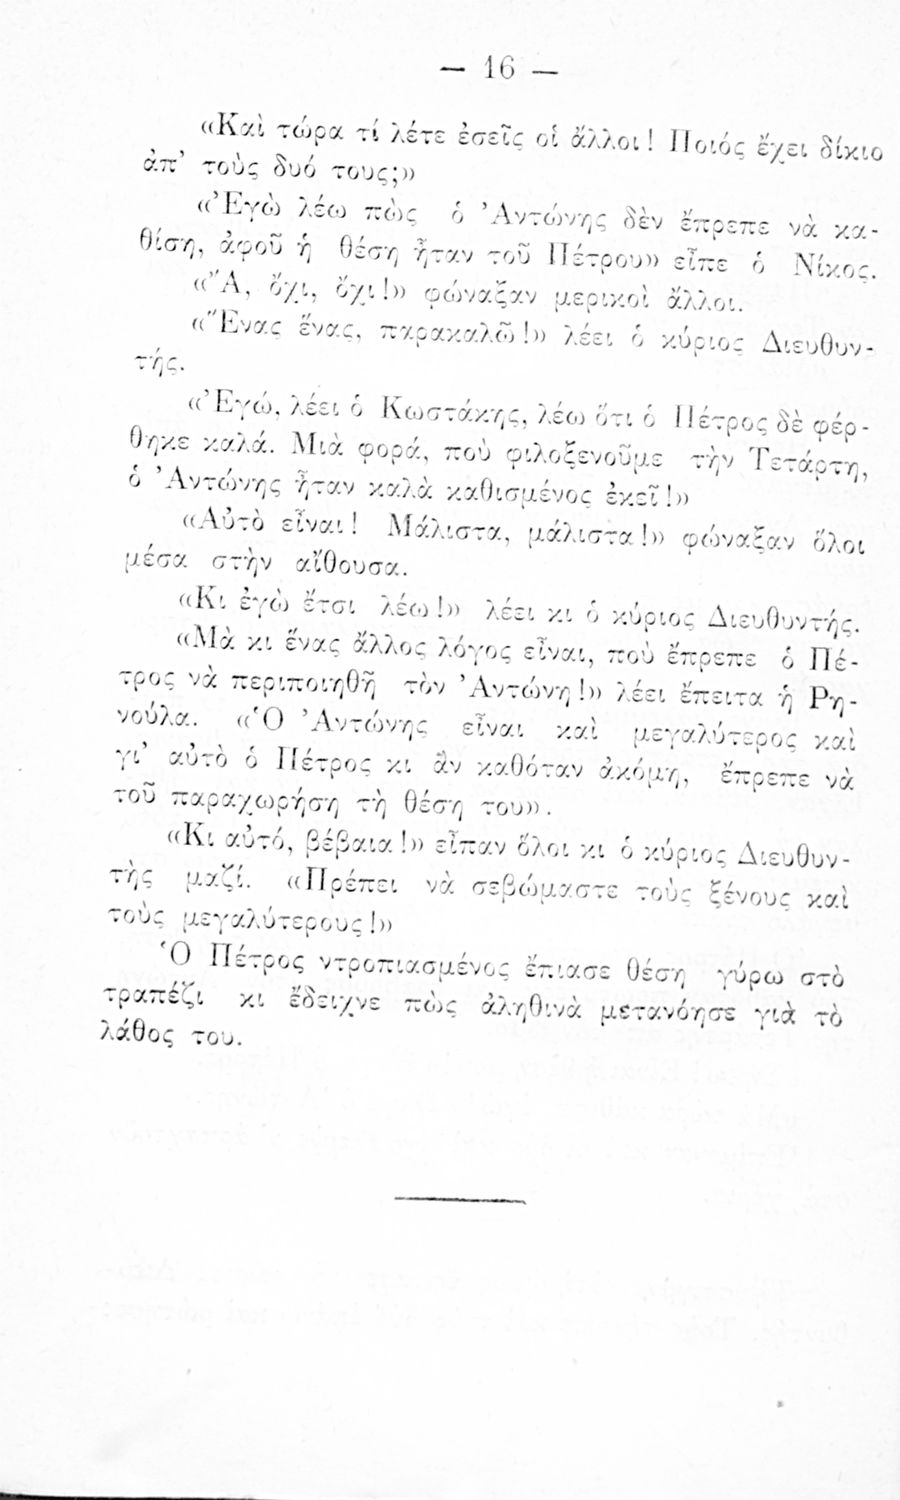 — 16 —
«Καὶ τώρα τί λέτε ἐσεῖς οἱ ἄλλοι! Ποιός ἔχει δίκιο
ἀπ’ τοὺς δυό τους;»
«Ἐγὼ λέω πὼς ὁ Ἀντώνης δὲν ἔπρεπε νὰ κα-
θίση, ἀφοῦ ἡ θέση ἦταν τοῦ Πέτρου» εἶπε ὁ Νίκος.
«Ἄ, ὄχι, ὄχι!» φώναξαν μερικοὶ ἄλλοι.
«Ἕνας ἕνας, παρακαλῶ!» λέει ὁ κύριος Διευθυν-
τής.
«Ἐγώ, λέει ὁ Κωστάκης, λέω ὅτι ὁ Πέτρος δὲ φέρ-
θηκε καλά. Μιὰ φορά, ποὺ φιλοξενοῦμε τὴν Τετάρτη,
ὁ Ἀντώνης ἦταν καλὰ καθισμένος ἐκεῖ!»
«Αὐτὸ εἶναι! Μάλιστα, μάλιστα!» φώναξαν ὅλοι
μέσα στὴν αἴθουσα.
«Κι ἐγὼ ἔτσι λέω!» λέει κι ὁ κύριος Διευθυντής.
«Μὰ κι ἕνας ἄλλος λόγος εἶναι, ποὺ ἔπρεπε ὁ Πέ-
τρος νὰ περιποιηθῆ τὸν Ἀντώνη!» λέει ἔπειτα ἡ Ρη-
νούλα. «Ὁ Ἀντώνης εἶναι καὶ μεγαλύτερος καὶ
γι’ αὐτὸ ὁ Πέτρος κι ἂν καθόταν ἀκόμη, ἔπρεπε νὰ
τοῦ παραχωρήση τὴ θέση του».
«Κι αὐτό, βέβαια!» εἶπαν ὅλοι κι ὁ κύριος Διευθυν-
τὴς μαζί. «Πρέπει νὰ σεβώμαστε τοὺς ξένους καὶ
τοὺς μεγαλύτερους!»
Ὁ Πέτρος ντροπιασμένος ἔπιασε θέση γύρω στὸ
τραπέζι κι ἔδειχνε πὼς ἀληθινὰ μετανόησε γιὰ τὸ
λάθος του.